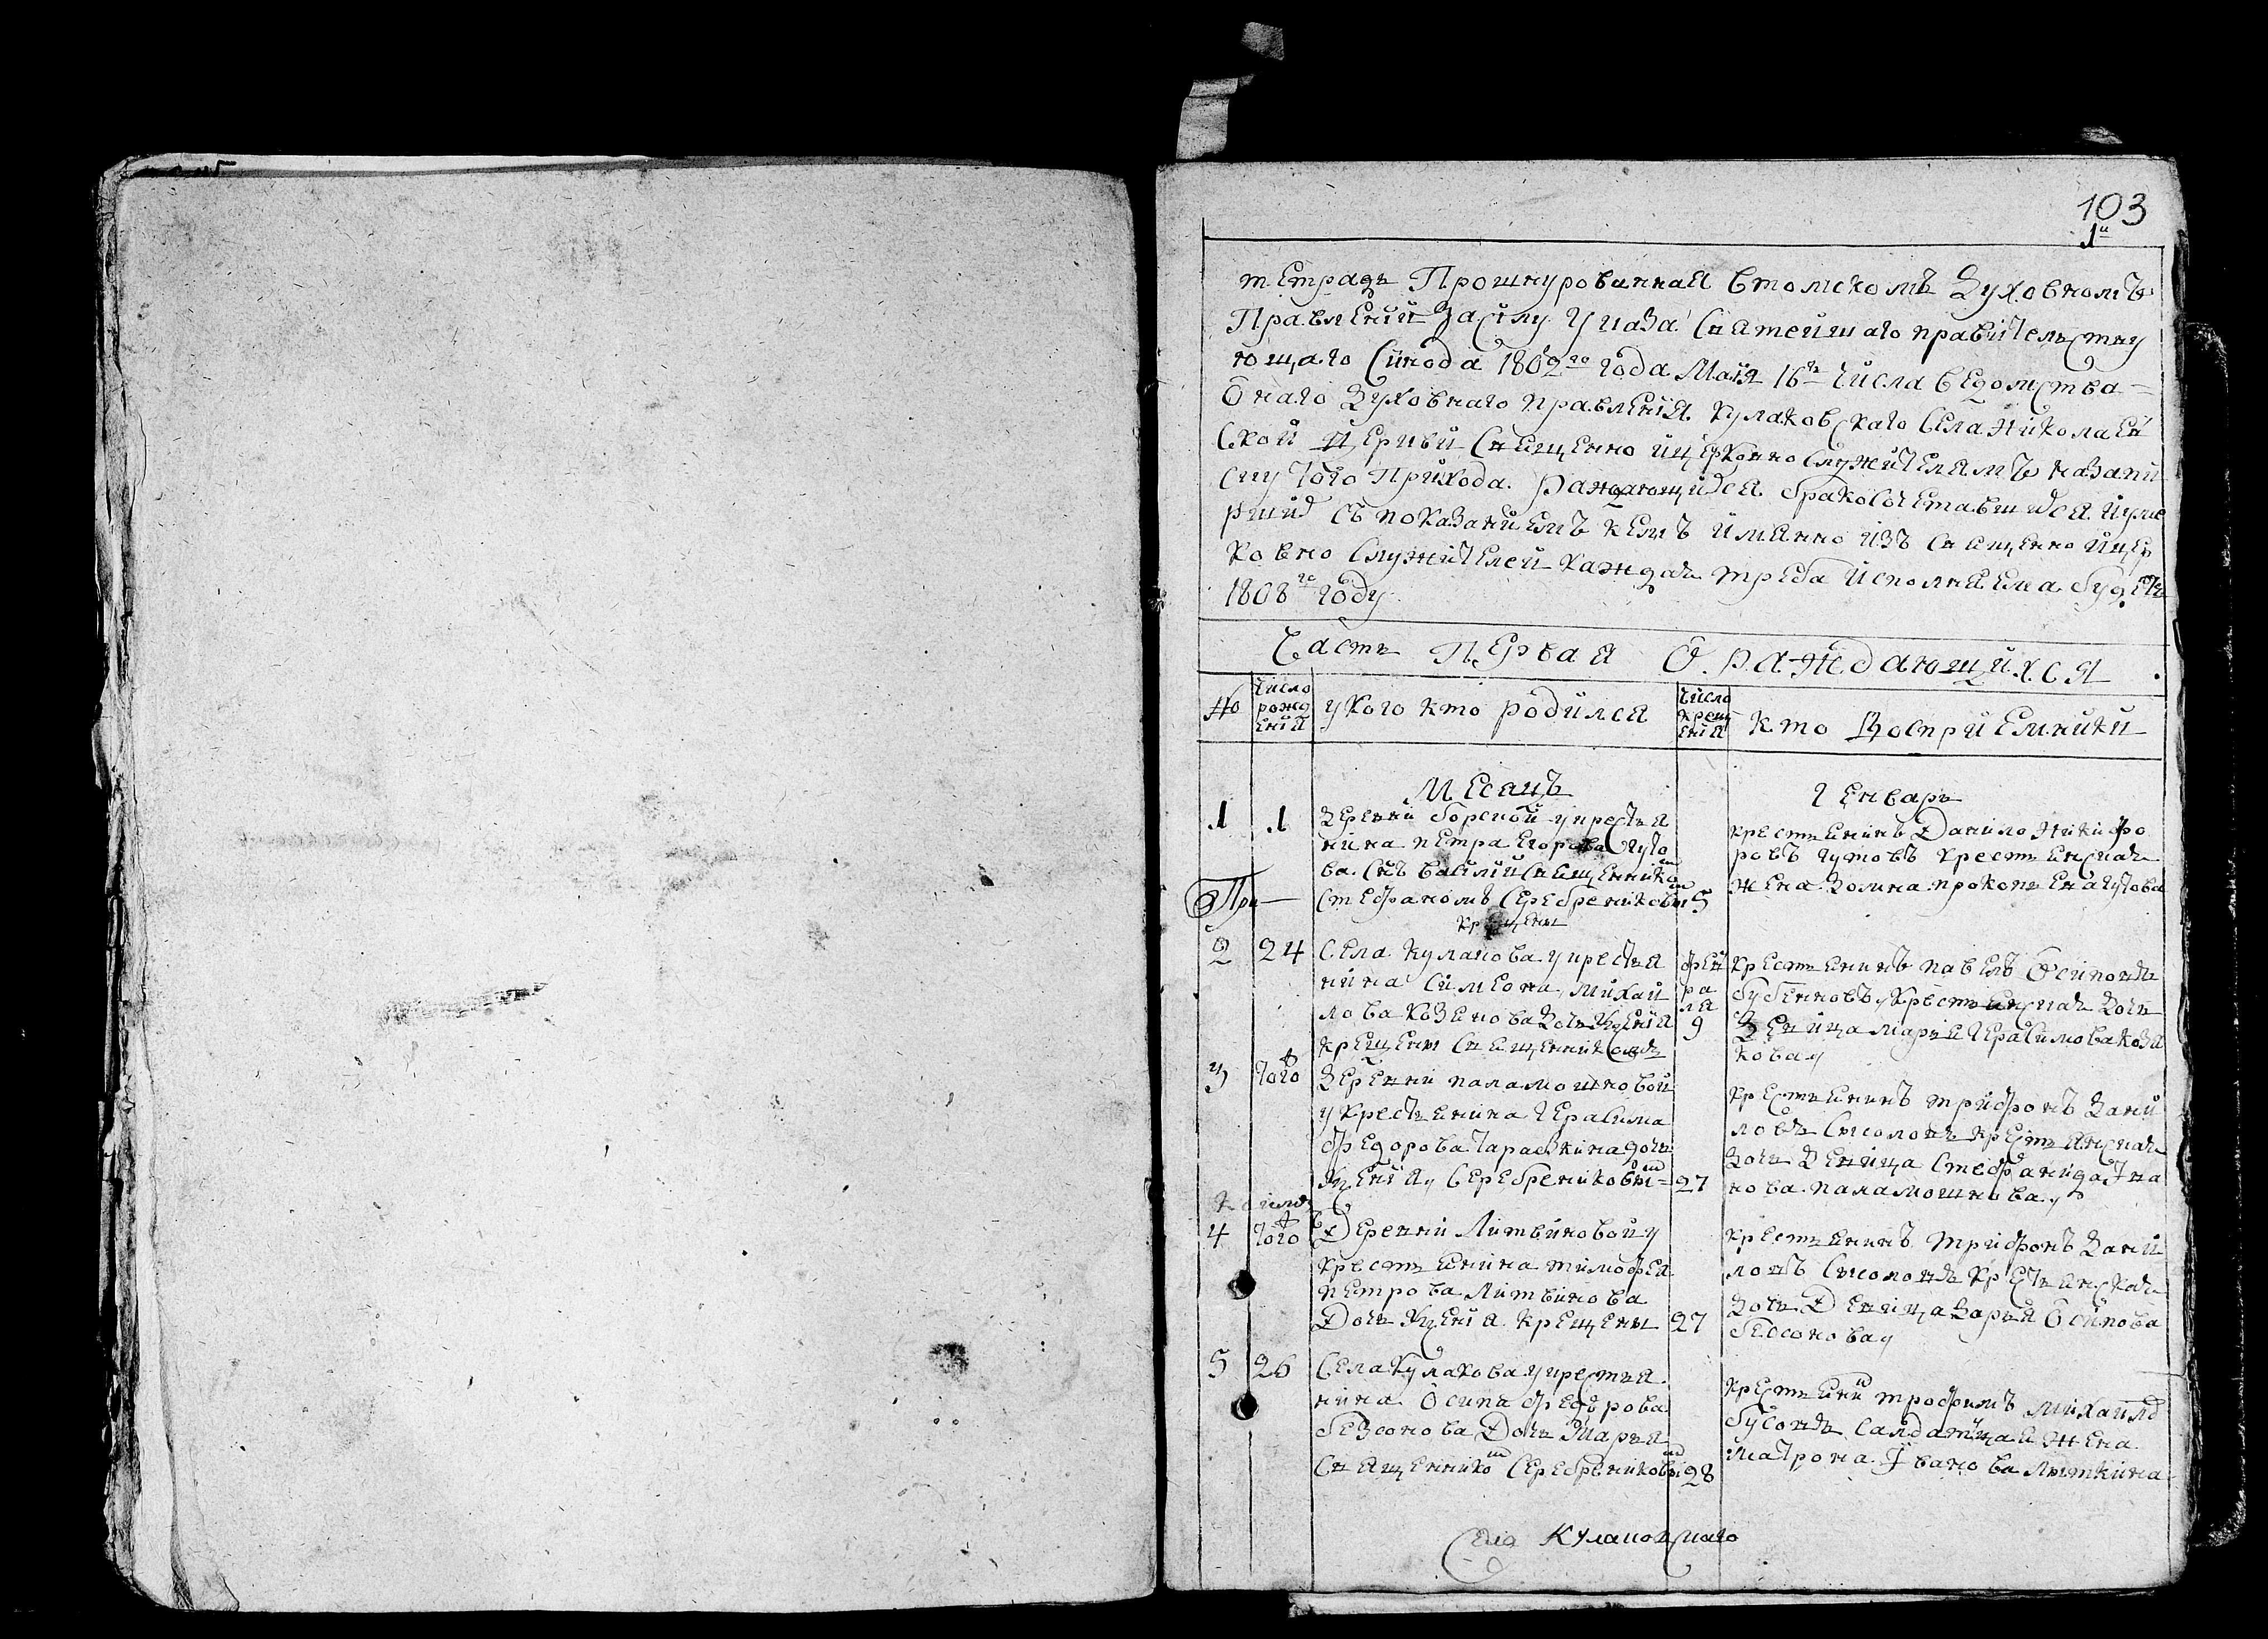 103
1й
тетрадь Прошнурованная втомскомъ Духовномъ
Правленïи Засилу Указа Святейшаго правительству
ющаго Синода 1802го года Маïя 16гo числа ведомства
Онаго Духовнаго правленïя кулаковскаго Села Николаев
ской Церкви Священно ицерковно служителямъ назапи
ску того Прихода Раждающихся бракосочетавшихся иуме
ршихъ съ показанïемъ кемъ имянно изъ Священно ицер
ковно служителей каждая треба исполняема будетъ
1808го году
Часть Первая О раждающихся
№
число рождения
укого кто родился
число крещения
кто Восприемники
Месацъ
Генварь
1 1
деревни борской укрестья
нина петра егорова Чуто
ва Снъ василий Священнико
Стефаномъ Серебрениковым 5
крещены
При
крестьянинъ Данило Никифо
ровъ Чутовъ крестьянская
жена домна прокопьева Чутова
2 24
Села кулакова укрестья
нина Симеона Михай
лова козакова дочь Ксения
крещены Священникомъ
февраля 9
крестьянинъ павелъ Осиповъ
Крестьянская дочь
Девица марья Герасимова коза
кова
3 того
Деревни паламошновой
укрестьянина Герасима
федорова тараскина дочь
Ксения Серебрениковым 27
крестьянинъ трифонъ Дани
ловъ Соколовъ крестьянская
дочь Девица Стефанида Ива
нова паламошнова
4 того
Деревни Литвиновой у
крестьянина тимофея
петрова Литвинова
Дочь Ксения крещены 27
крестьянинъ трифонъ Дани
ловъ Соколовъ крестьянская
дочь Девица Дарья Осипова
безсонова
5 26
Села Кулакова укрестья
нина Осипа федорова
безсонова Дочь Марья
Священнико Серебрениковы 28
крестьяни трофимъ михаило
Гусовъ салдатцкая жена
матрона Иванова Лыткина
Села Кулаковскаго